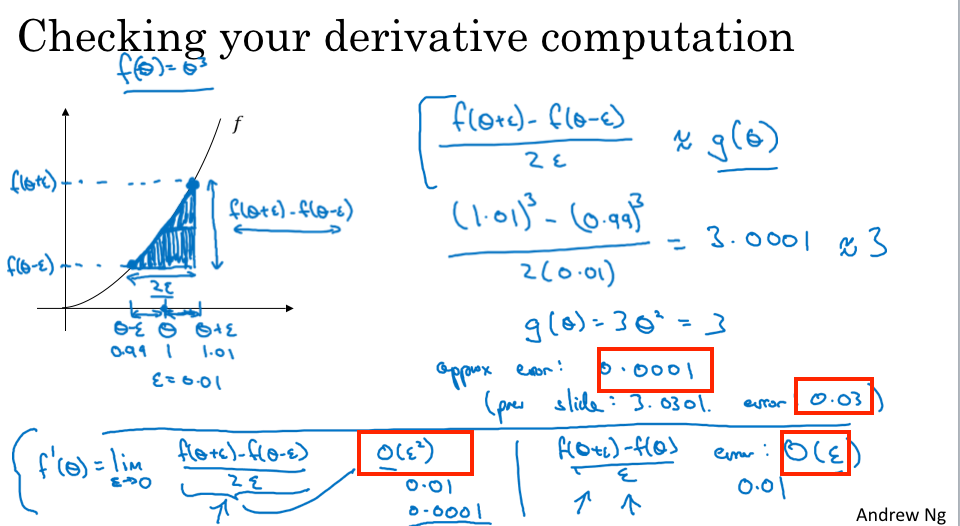 Checking your derivative computation
f(θ) = θ³
f
f(θ+ε)
f(θ-ε)
f(θ+ε) - f(θ-ε)
2ε
θ-ε θ θ+ε
0.99 1 1.01
ε = 0.01
f(θ+ε) - f(θ-ε)
2ε
≈ g(θ)
(1.01)³ - (0.99)³
2(0.01)
= 3.0001 ≈ 3
g(θ) = 3θ² = 3
approx error: 0.0001
(prev slide: 3.0301. error: 0.03)
f'(θ) = lim ε→0
f(θ+ε) - f(θ-ε)
2ε
O(ε²)
0.01
0.0001
f(θ+ε) - f(θ)
ε
error: O(ε)
0.01
Andrew Ng